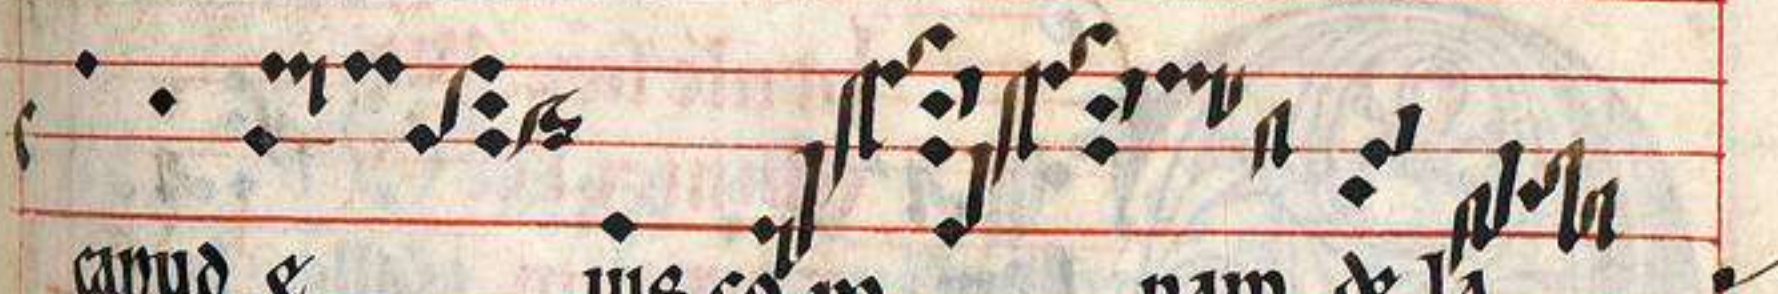 capud e ius co m nam de la